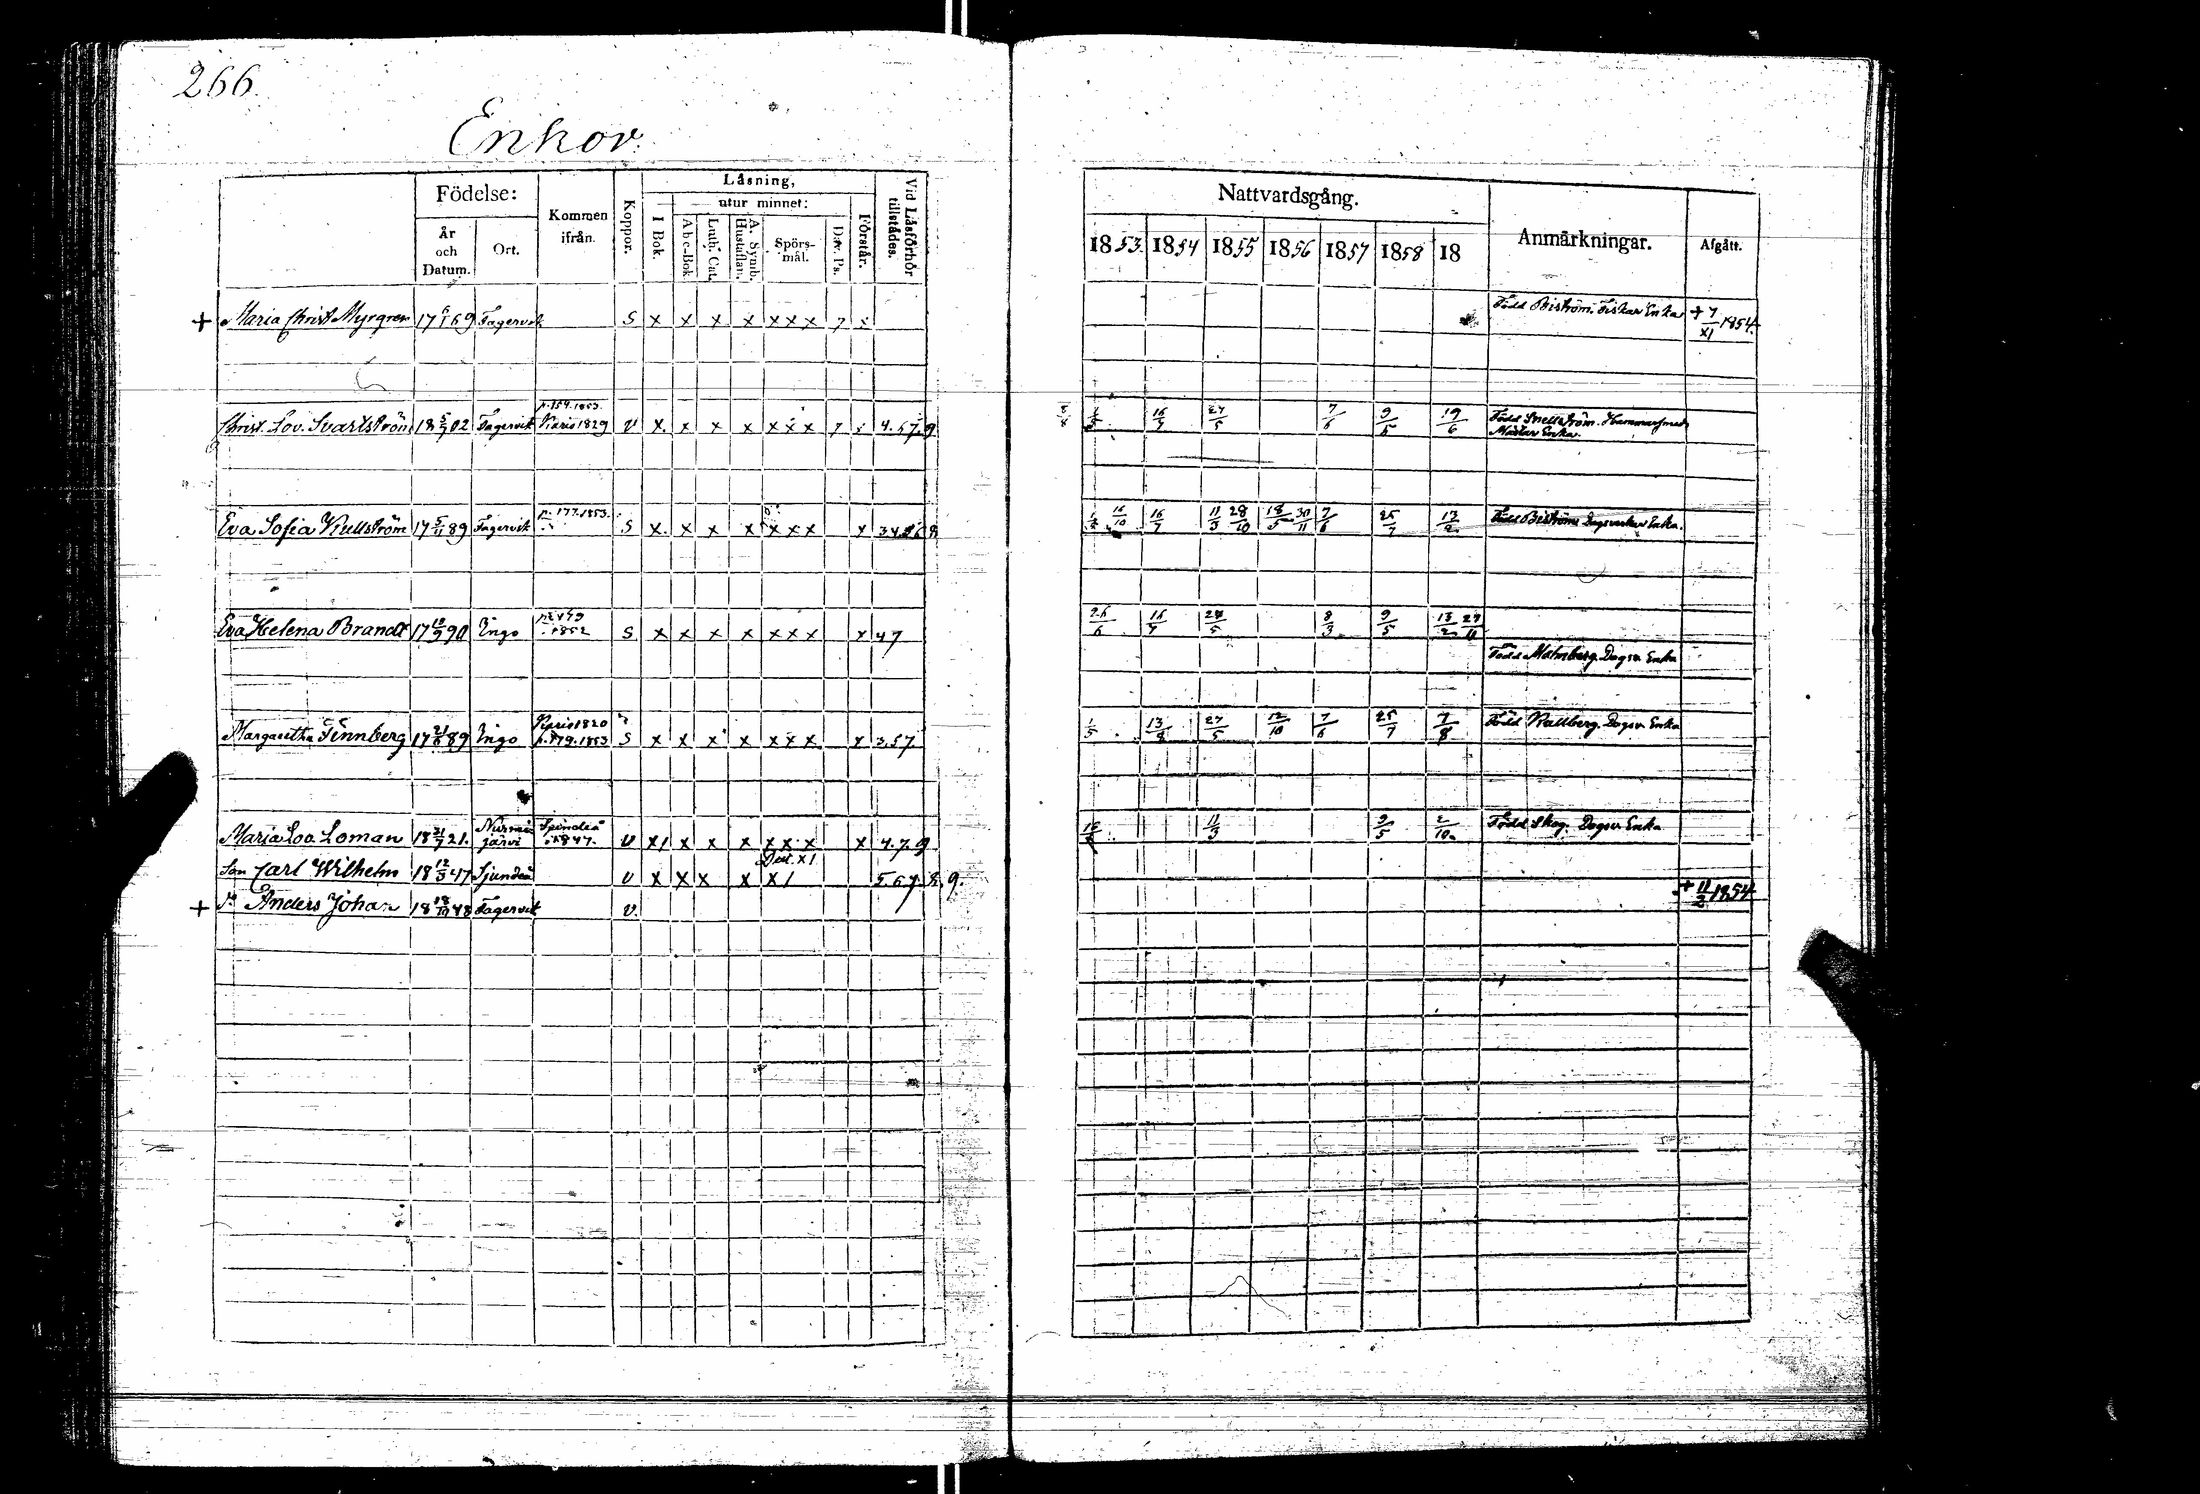 266.
Enkor.
Födelse: Kommen ifrån. Koppor. Läsning, Vid Läsförhör tillstådes. Nattvardsgång. Anmärkningar. Afgått.
År och Datum. Ort. I Bok. utur minnet: Förstår.
Abc-Bok. Luth. Cat. A. Symb. Hustaflan. Spörsmål. Dav. Ps. 1853. 1854 1855 1856 1857 1858 18
+ Maria Christ Myrgren 17 6/1 69 Fagervik S x x x x x x x 7 x Född Biström. Fiskar Enka + 7/XI 1854.
p. 154. 1853.
Christ. Lov. Svartström 18 5/7 02 Fagervik Karis 1829 V x. x x x x x x 7 x 4. 5.7.9 16/7 27/5 7/6 9/5 19/6 Född Snellström. Hammarsmeds
Mästar Enka.
p. 177. 1853.
Eva Sofia Kullström 17 5/11 89 Fagervik S x. x x x x x x x 16/10 16/7 11/3 28/10 18/5 30/11 7/6 25/7 13/2 Född Biström Dagsverkar Enka.
Eva Helena Brandt 17 90 Ingo 1852 S x x x x x x x x 47 26/6 16/7 28/5 8/3 9/5 13/2 27/11
Född Malmberg. Dagsv. Enka
Karis 1820
Margaretha Finnberg 17 21/6 89 Ingo p. 179. 1853 S x x x x x x x x 3.5.7. 1/5 13/8 27/5 12/10 7/6 25/7 7/8 Född Kallberg. Dagsv. Enka
Nurmi
Maria Lov. Loman 18 31/7 21. järvi 1847. V x1 x x x x x x x 4. 7. 9 11/3 9/5 2/10. Född Skog. Dagsv Enka
Son Carl Wilhelm 18 12/3 47 Sjundeå V x x x x x 1 5. 6 7. 8. 9.
+ Anders Johan 18 18/10 48 Fagervik V. + 11/2 1854